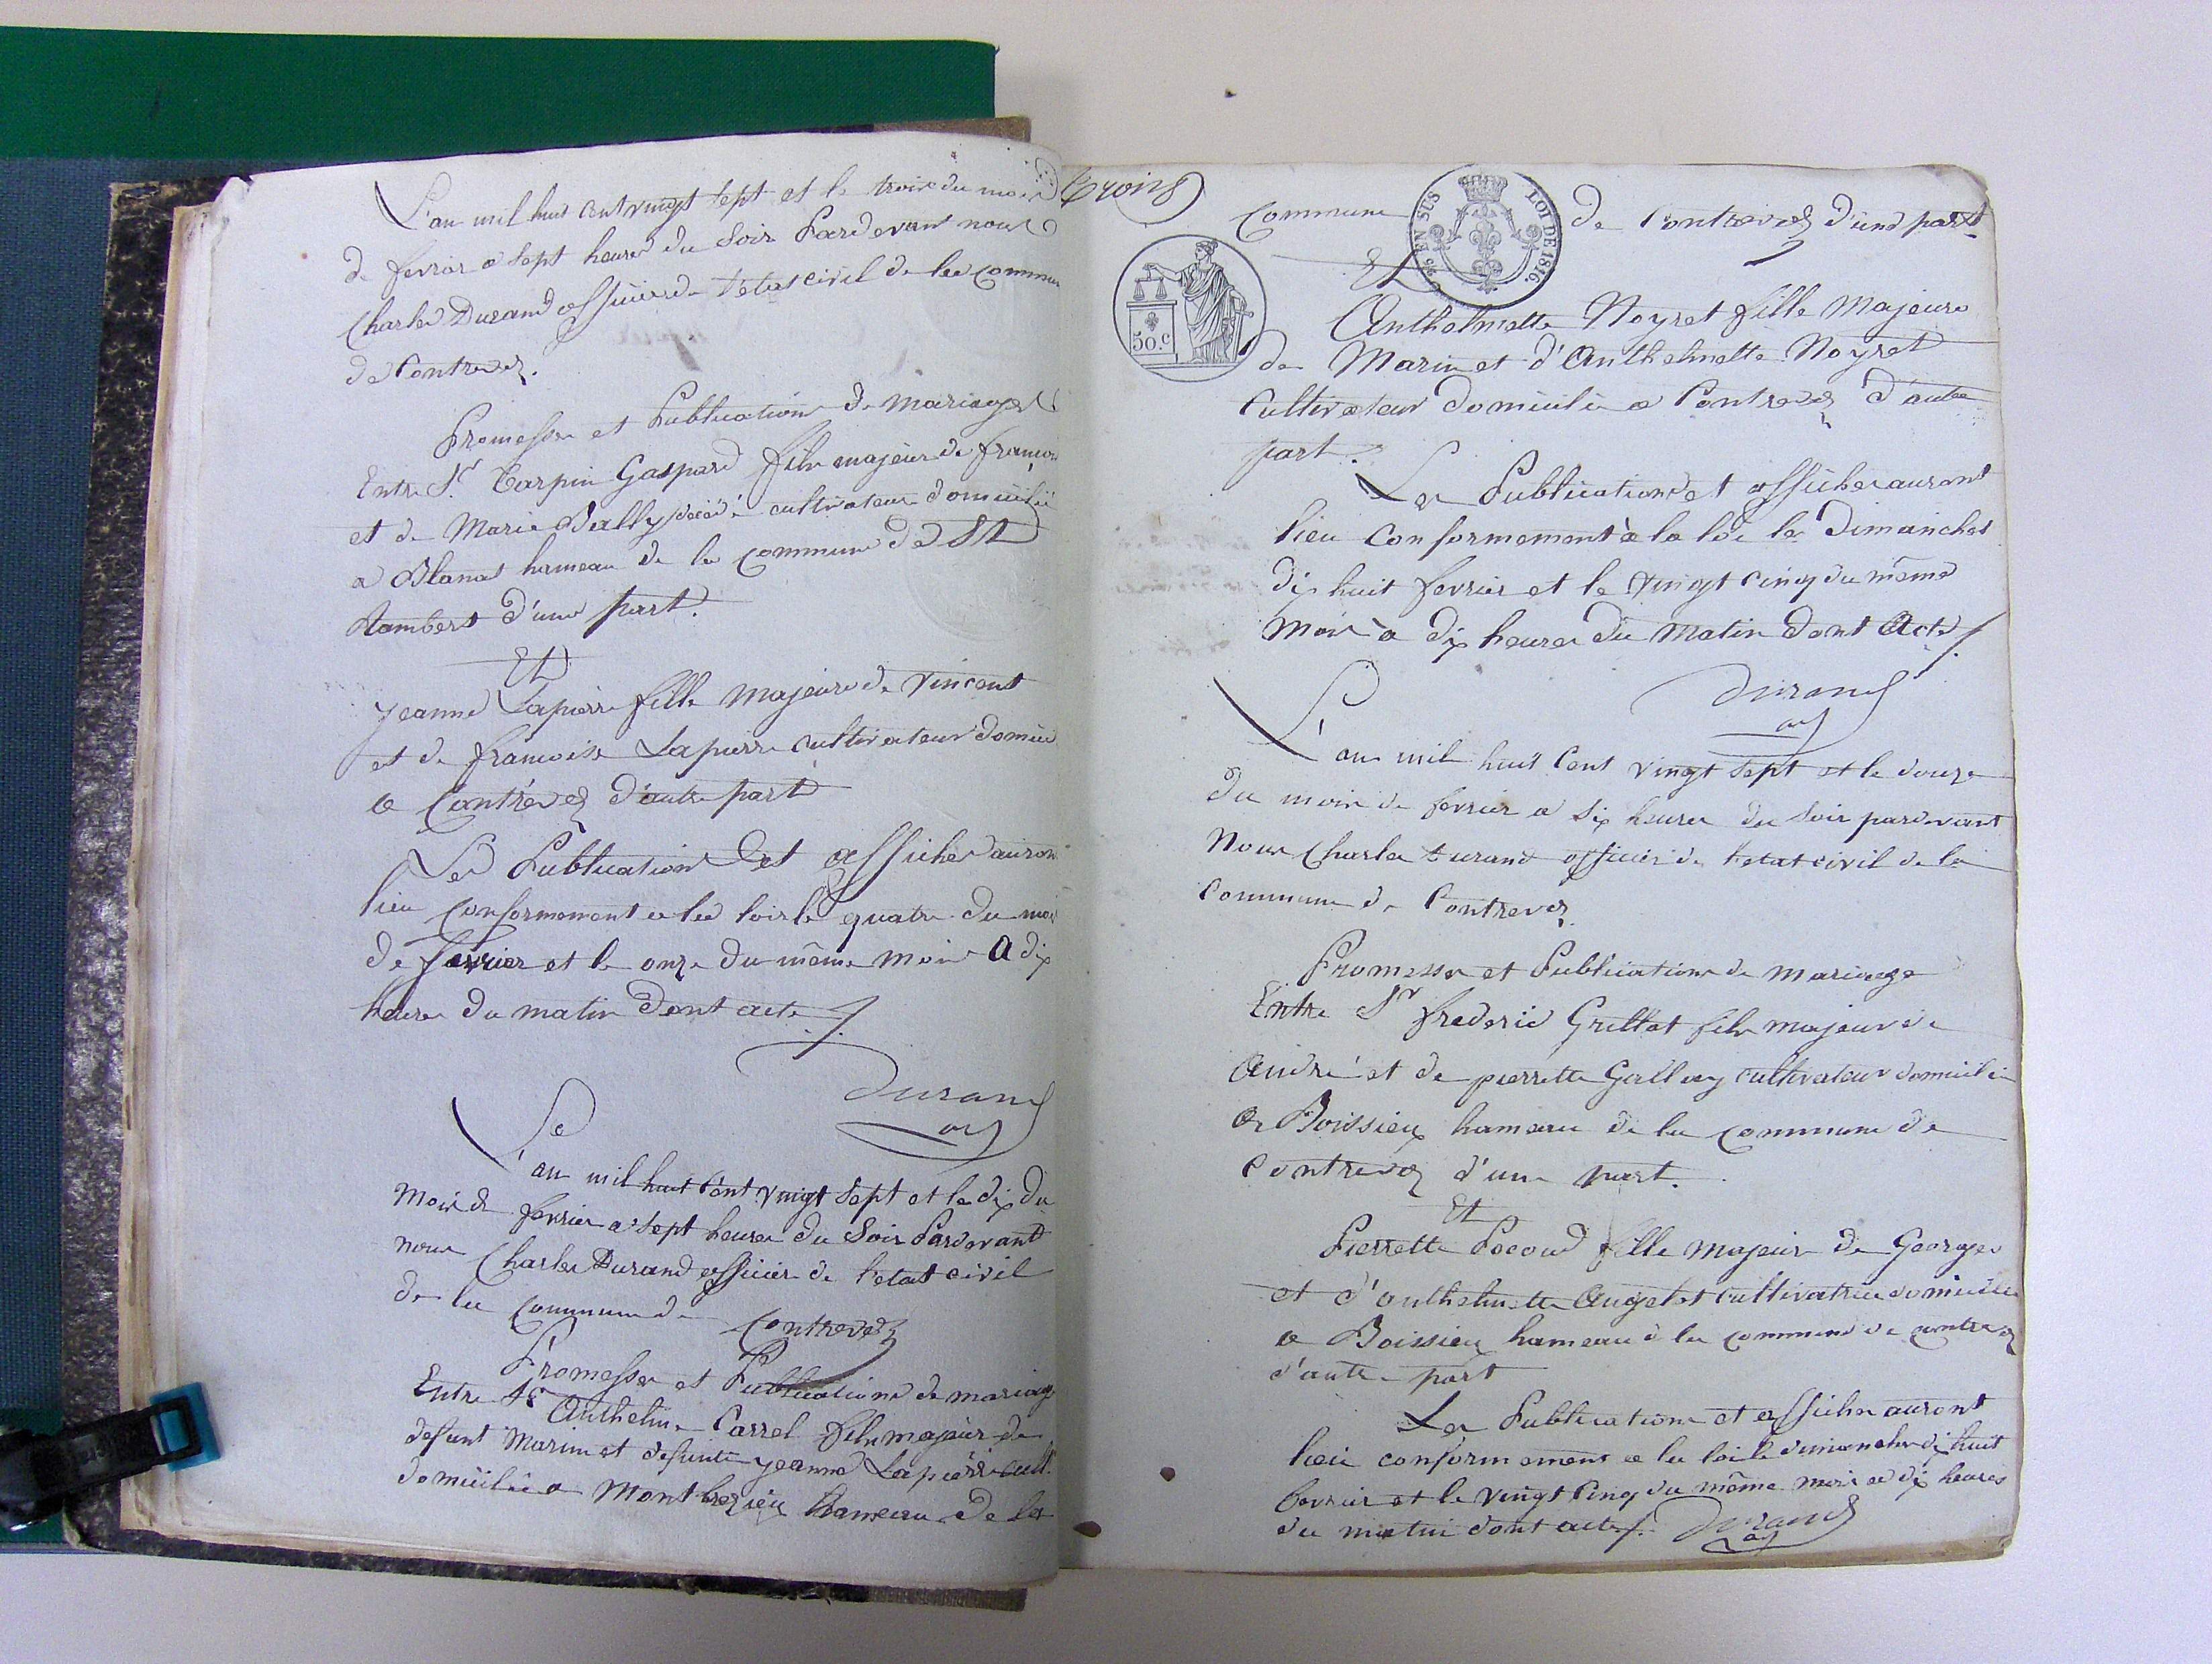 L'an mil huit cent vingt sept et le trois du mois
de fevrier a sept heures du soir Pardevant nous
Charles Durand officier de l'etat civil de la commune
de Contrevoz.
Promesses et Publications de mariages
Entre Sr. Carpin Gaspard fils majeur de francois
et de Marie cultivateur domicilié
a hameau de la commune de St
Rambert d'une part.
Et
jeanne Lapierre fille majeure de Vincent
et de francoise Lapierre cultivateur domicil
a Contrevoz d'autre part
Les Publications et affiches auron
lieu conformement a la loi le quatre du mois
de fevrier et le onze du même mois a dix
heures du matin Dont acte
Durand
L'an mil huit Cent vingt sept et le dix du
Mois de fevrier a sept heures du soir Pardevant
nous Charles Durand officier de l'etat civil
de la commune de Contrevoz
Promesses et Publications de mariage
Entre Sr Anthelme Carrel fils majeur de
defunt Marin et defunte jeanne Lapierre cult.
domicilié a Montbrezieu hameau de la
trois
commune de Contrevoz d'une part
% EN SUS
LOI DE 1816.
50.c
Et
Anthelmette Noyret fille Majeure
de Marin et d'Anthelmette Noyret
Cultivateur Domicilié a Contrevoz D'autre
part.
Les Publications et affiches auront
lieu Conformement à la loi les Dimanches
dix huit fevrier et le vingt Cinq du même
Mois à dix heures du Matin Dont Acte
Durand
L'an mil huit Cent vingt sept et le douze
du mois de fevrier a six heures du soir pardevant
Nous Charles Durand officier de l'etat civil de la
Commune de Contrevoz
Promesses et Publications de mariage
Entre Sr frederic Grillet fils majeur de
André et de pierrette Gallay cultivateur domicilié
a Boissieu hameau de la commune de
Contrevoz d'une part.
Et
Pierrette Pocoud fille majeur de Georges
et d'anthelmette Augelot cultivatrice domiciliée
a Boissieu hameau de la commune de contrevoz
d'autre part
Les Publications et affiches auront
lieu conformement a la loi le dimanche dix huit
fevrier et le vingt Cinq du même mois a dix heures
du matin dont acte. Durand